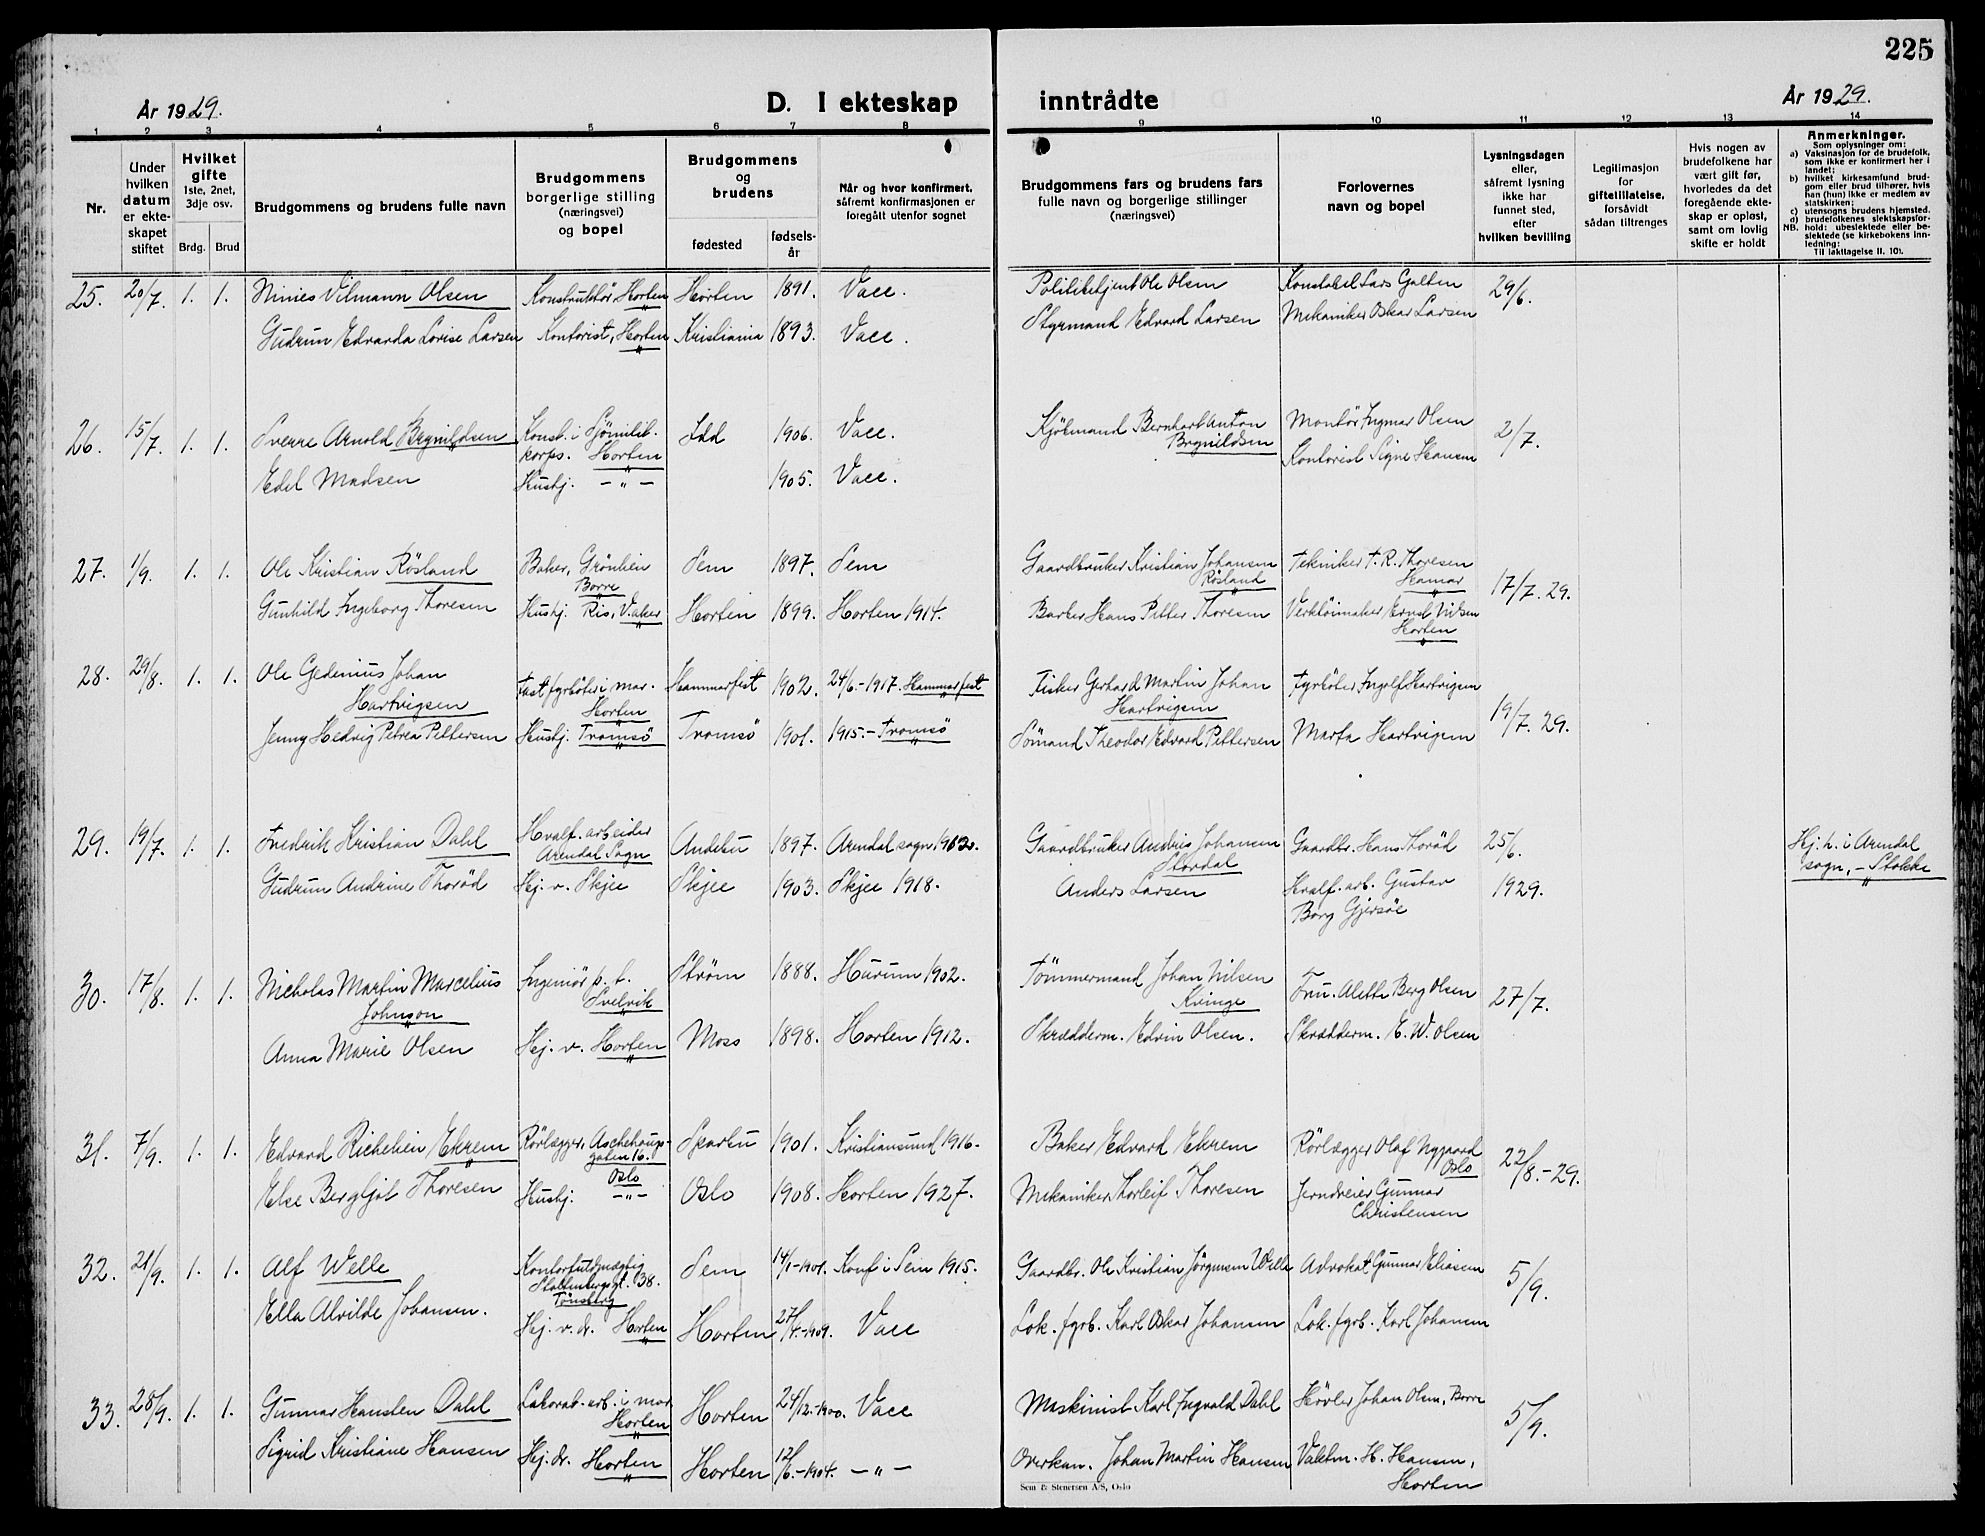 225
År 1929.
D. I ekteskap inntrådte
År 1929.
1 2 3 4 5 6 7 8 9 10 11 12 13 14
Nr.
Under hvilken datum er ekteskapet stiftet
Hvilket gifte 1ste, 2net, 3dje osv.
Brdg. Brud
Brudgommens og brudens fulle navn
Brudgommens borgerlige stilling (næringsvei) og bopel
Brudgommens og brudens
fødested
fødselsår
Når og hvor konfirmert, såfremt konfirmasjonen er foregått utenfor sognet
Brudgommens fars og brudens fars fulle navn og borgerlige stillinger (næringsvei)
Forlovernes navn og bopel
Lysningsdagen eller, såfremt lysning ikke har funnet sted, efter hvilken bevilling
Legitimasjon for giftetillatelse, forsåvidt sådan tiltrenges
Hvis nogen av brudefolkene har vært gift før, hvorledes da det foregående ekteskap er opløst, samt om lovlig skifte er holdt
Anmerkninger.
Som oplysninger om:
a) Vaksinasjon for de brudefolk, som ikke er konfirmert her i landet;
b) hvilket kirkesamfund brudgom eller brud tilhører, hvis han (hun) ikke er medlem av statskirken;
c) utensogns brudens hjemsted.
d) brudefolkenes slektskapsforhold: ubeslektede eller beslektede (se kirkebokens innledning:
NB.
Til iakttagelse II. 10).
25. 20/7. 1. 1. Nimies Vilmann Olsen Konstruktör Horten Horten 1891. Vacc. Politibetjent Ole Olsen Konstabel Lars Galten 29/6.
Gudrun Edvarda Lovise Larsen Kontorist, Horten Kristiania 1893. Vacc. Styrmand Edvard Larsen Mekaniker Oskar Larsen
26. 15/7. 1. 1. Sverre Arnold Brynildsen Konst. i Sjömilit. korps. Horten Idd 1906. Vacc. Kjöbmand Bernhart Anton Brynildsen Montör Ingmar Olsen 2/7.
Edel Madsen Husbj. - " - 1905. Vacc. Kontorist Signe Hansen
27. 1/9. 1. 1. Ole Kristian Røsland Baker, Grönlien Borre Sem 1897. Sem Gaardbruker Kristian Johansen Røsland Tekniker T. R. Thoresen Hamar 17/7. 29.
Gunhild Ingeborg Thoresen Husbj. Ris, V. aker Horten 1899. Horten 1914. Barber Hans Petter Thoresen Verktöimaker Ernst Nilsen Horten
28. 29/8. 1. 1. Ole Gedenius Johan Hartvigsen Fast fyrböter i mar. Horten Hammerfest 1902. 24/6.-1917. Hammerfest Fisker Gerhard Martin Johan Hartvigsen Fyrböter Ingolf Hartvigsen 19/7. 29.
Jenny Hedvig Petrea Pettersen Husbj. Tromsö Tromsö 1901. 1915.- Tromsö Sömand Theodor Edvard Pettersen Marta Hartvigsen
29. 19/7. 1. 1. Fredrik Kristian Dahl Hvalf. arbeider Arendal Sogn Andebu 1897. Arendal sogn 1912. Gaardbruker Andreas Johansen Stordal Gaardbr. Hans Thorød 25/6. 1929. Hj. h. i Arendal sogn, - Stokke
Gudrun Andrine Thorød Hj. v. Skjee Skjee 1903. Skjee 1918. Anders Larsen Hvalf. arb. Gustav Borg Gjersøe
30. 17/8. 1. 1. Nicholas Martin Marcelius Johnson Ingeniör p. t. Svelvik Strøm 1888. Hurum 1902. Tömmermand Johan Nilsen Kvinge Fru. Alette Berg Olsen 27/7.
Anna Marie Olsen Hj. v. Horten Moss 1898. Horten 1912. Skrædderm. Edvin Olsen. Skrædderm. E. W. Olsen
31. 7/9. 1. 1. Edvard Richelien Ekrem Rörlægger, Aschehougsgaten 16. Oslo Skarbu 1901. Kristiansund 1916. Baker Edvard Ekrem Rörlægger Olaf Nygaard Oslo 22/8.-29.
Else Bergljot Thoresen Husbj. - " - Oslo 1908. Horten 1927. Mekaniker Thorleif Thoresen Jerndreier Gunnar Christensen
32. 21/9. 1. 1. Alf Welle Kontorfuldmægtig Stoltenbergsgt. 38. Tönsberg Sem 14/1-1901. Konf i Sem 1915. Gaardbr. Ole Kristian Jörgensen Welle Advokat Gunnar Eliasen 5/9.
Ella Alvilde Johansen. Hj. v. dr. Horten Horten 27/4.-1909. Vacc Lok. fyrb. Karl Oskar Johansen Lok. fyrb. Karl Johansen
33. 28/9. 1. 1. Gunnar Hansten Dahl Laborat. arb. i mar. Horten Horten 24/12.-1900. Vacc Maskinist Karl Ingvald Dahl Hövler Johan Olsen, Borre 5/9.
Sigrid Kristiane Hansen Hj. dr. Horten Horten 12/6.-1904. - " - Overkan. Johan Martin Hansen Vaktm. H. Hansen, Horten
Sem & Stenersen A/S, Oslo